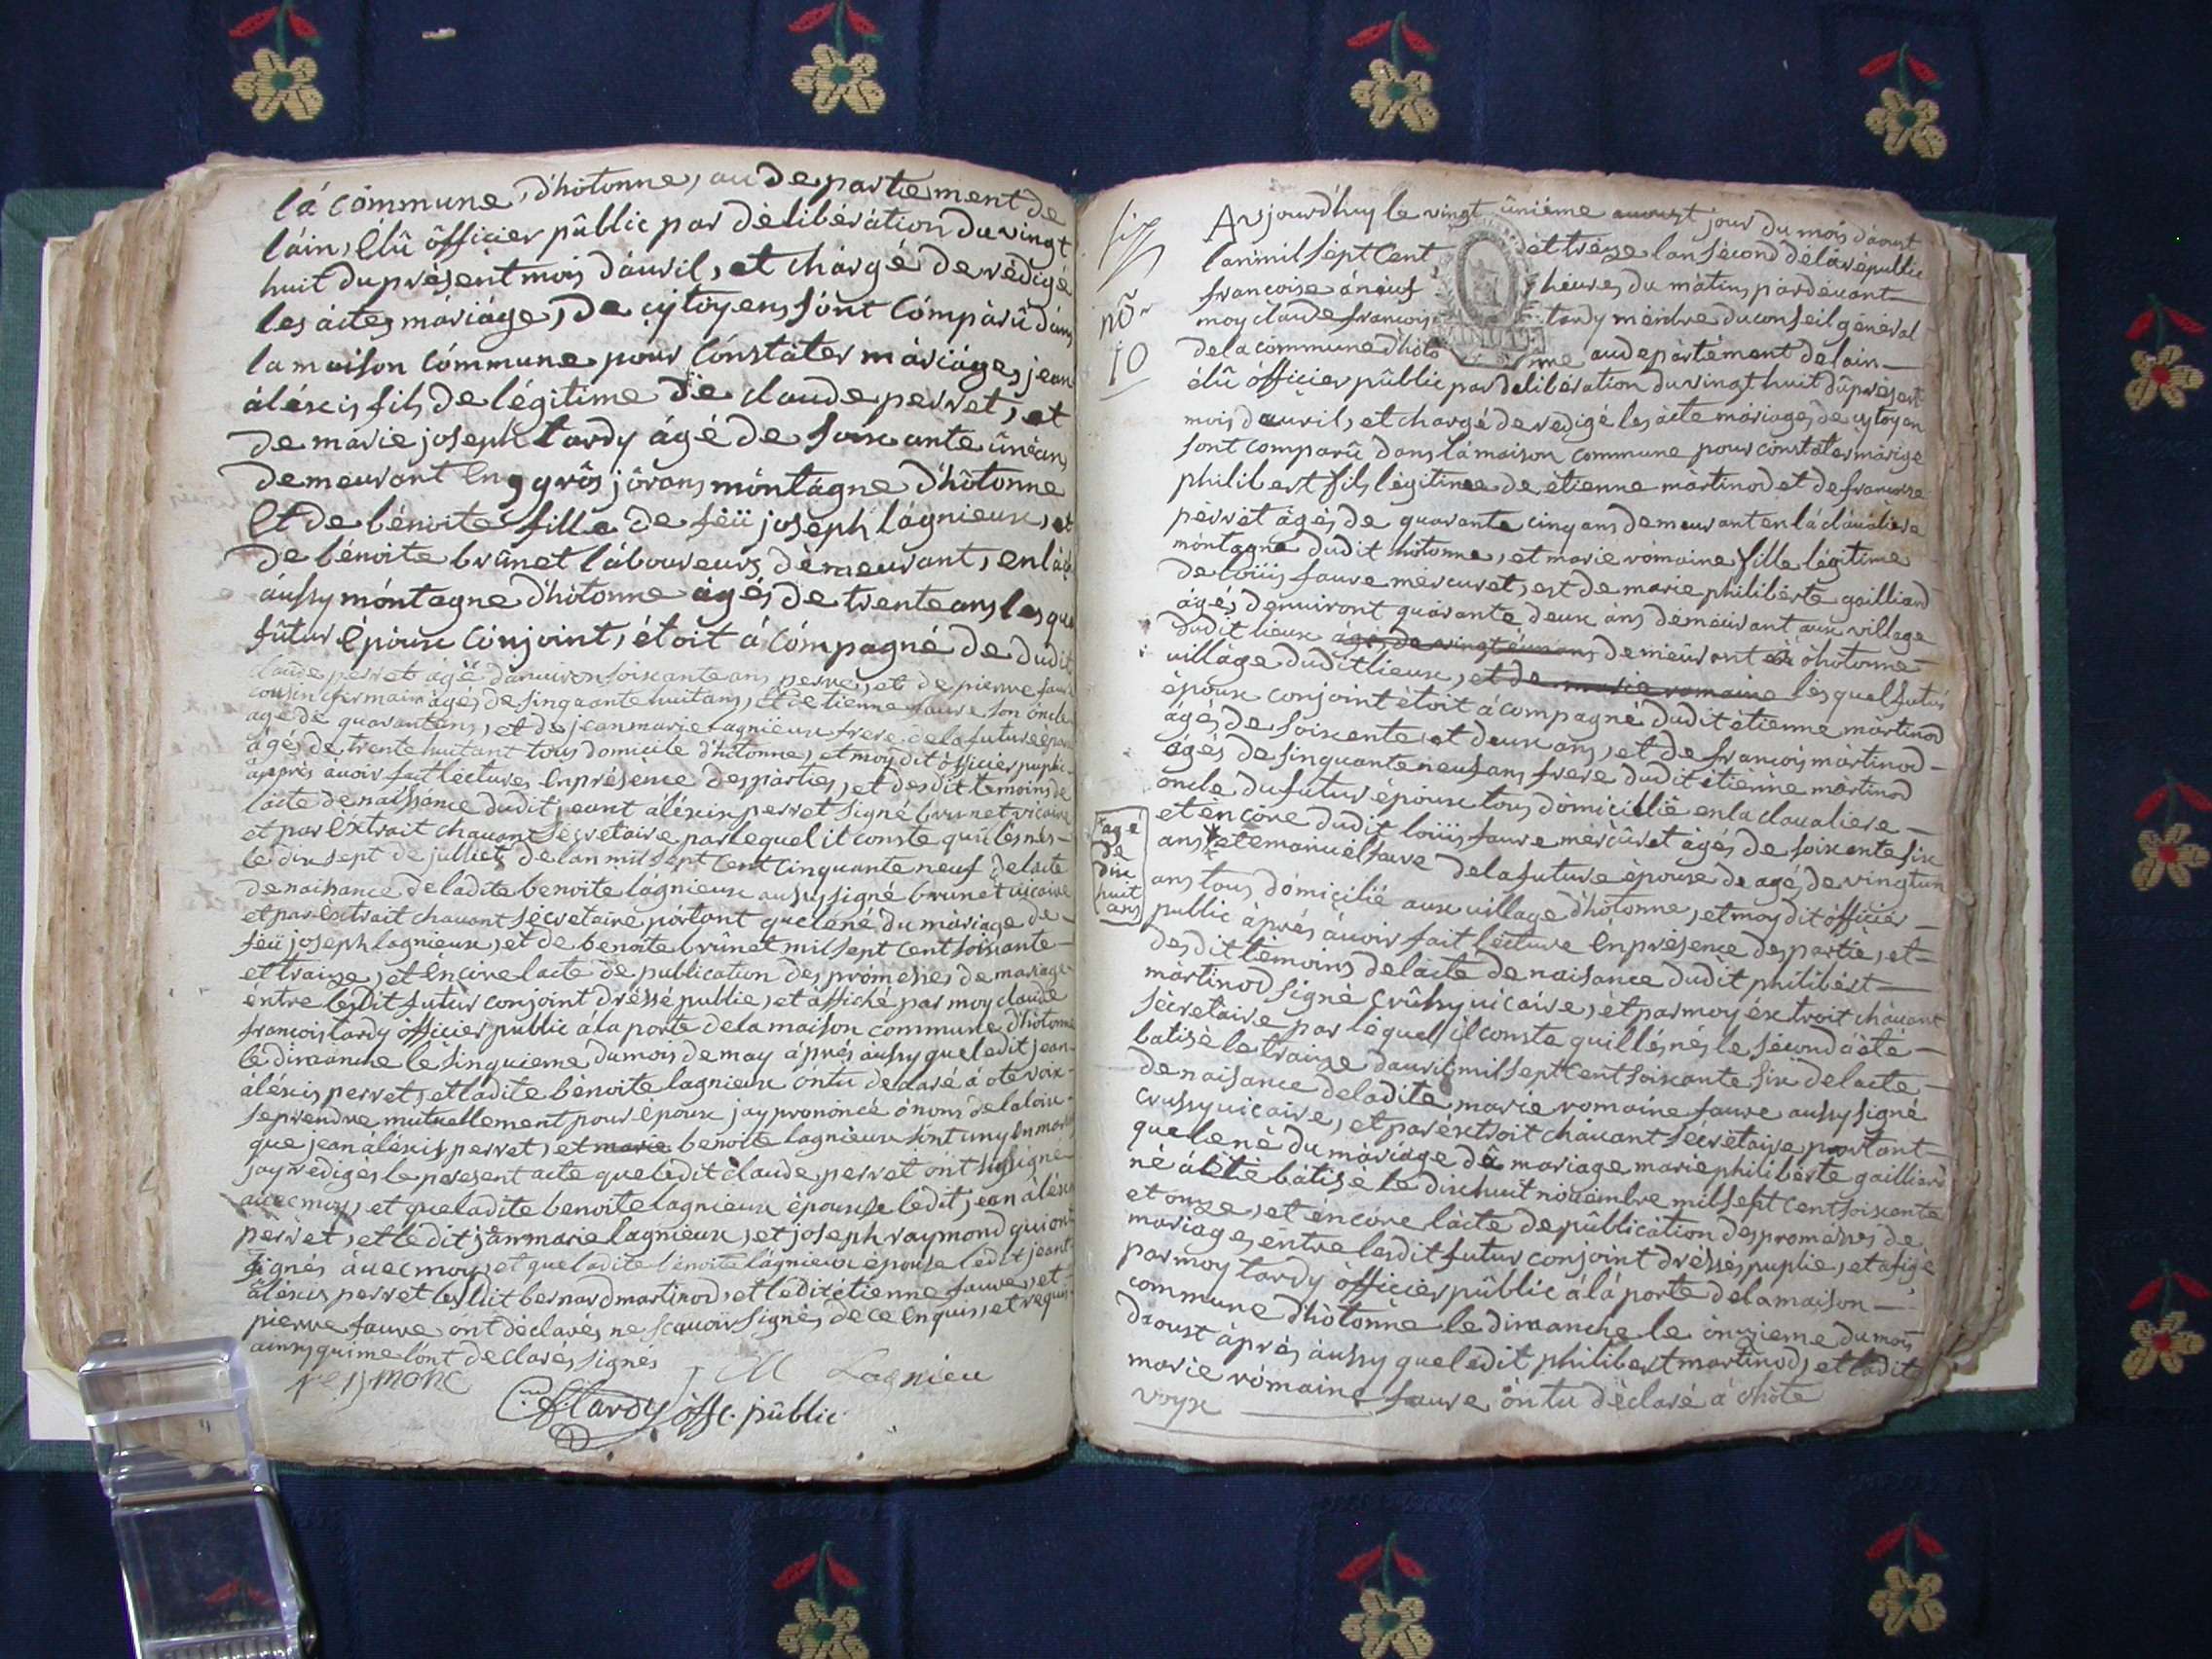 lá cómmune, d'hôtonne, au departiement de
láin, Elû ôfficier pûblic par dèlibération du vingt
huit du présent mois d'áuril, et chargé de rèdigé
les áctes máriáge, de cytoyens sónt cómpárû dans
la maison cómmune pour cónstáter máriáge, jean
áléxis fils de légitime de claude perret, et
de marie joseph tardy ágé de soixante ûn ans
demeurant en gros jôrans móntágne d'hôtonne
Et de bénoite fille de féü joseph lágnieux, et
de bénoite brûnet láboureurs démeurant, en
áussy móntagne d'hôtonne ágés de trente ans lesque
fûtur épóux cónjoint, étoit á cómpagné de dudit
claude perret agé d'anuiron soixante ans perre, et de pierre faure
cousin germain ágés de sinquante huit ans, et de etienne faure son óncle
agé de quarantans, et de jean marie lagnieux frere de la future épouse
ágés de trente huit ant tous domicile d'hôtonne, et moy dit ófficier public
ápprés áuoir fait lécture en présence des párties, et des dit temoins de
lácte de naissance dudit jeant aléxis perret signé brunet vicaire
et par éxtrait chauant sécretaire par lequel it conste quil és nés
le dix sept de julliet de lan mil sept cent cinquante neuf de lacte
de naissance de ladite benoite lágnieux aussy signé brunet vicaire
et par extrait chauant sécretaire pórtant que lené du mariage de
féü joseph lagnieux, et de benoite brûnet mil sept cent soixante
et traize, et éncóre lacte de publication des prómesses de mariage
éntre lesdit futur conjoint dréssé publie, et affiché par moy claude
francois tardy ófficier public á la porte de la maison commune d'hôtonne
lé dimanche le sinquieme du mois de may áprés áussy que ledit jean
áléxis perret, et ladite bénoite lagnieux óntu declaré á ote voix
se prendre mutuellement pour époux jay prononcé ó nom de la loix
que jean áléxis perret, et marie benoite lagnieux sont uny en mariage
jay redigés le present acte que ledit claude perret ónt signé
auec moy, et que ladite benoite lagnieux épouse ledit jean áléxis
perret, et lédit jean marie lagnieux, et joseph raymond qui ont
signés áuec moy, et que ladite benoite lágnieux épouse ledit jeant
áléxis perret lesdit bernard martinod, et ledit étienne faure, et
pierre faure ont déclarés ne scauoir signés de ce enquis, et requis
ainsy qui me lónt declarés signés
reymond Lagnieu
C. f. tardy óff. pûblic
Aujourd'huy le vingt ûniéme auoust jour du mois d'áoust
lan mil sépt Cent et tréze lan sécond de lá républic
francoise á neuf heures du mátin, pár déuant
moy claude francois tardy mémbre du conseil général
de la commune d'hôtonne au departément de lain
élû ófficier pûblic par délibération du vingt huit du présent
mois dauril, et chargé de redigé les ácte máriage, de cytoyan
sont comparû dans lá maison commune pour constater márige
philibert fils légitime de étienne mártinod et de francoise
perret ágés de quarante cinq ans demeurant en lá claualiere
móntagne dudit hôtonne, et marie rómaine fille légitime
de loüis faure mercuret, est de marie philibérte gailliard
ágés d'enuiront quárante deux áns démeurant aux village
dudit lieux ágés de vingt éun ans demeûrant ohôtonne
village dudit lieux, et de marie romaine lesquel futur
époux conjoint étoit á compagné dudit étienne mártinod
ágés de soixente et deux ans, et de francois mártinod
ágés de sinquante neuf ans frere dudit étienne mártinod
oncle du futur époux tous domicilie en la claualiere
et éncóre dudit loüis faure mercûret ágés de soixente six
ans et emanuél faure de la future épouse de agés de vingt un
agé
de
dix
huit
ans
ans tous dómicilié aux village d'hôtonne, et moy dit ófficier
public áprés áuoir fait lécture en présence des partie, et
des dit témoins de lácte de naisance dudit philibért
mártinod signé Crûssy uicaire, et par moy éxtrait cháuant
sécretaire par léquel il conste quil lés nés le sécond á été
batisé le traize dauril mil sept Cent soixante six de lacte
de naisance de ladite marie romaine faure aussy signé
crussy uicaire, et par éxtrait cháuant sécretaire portant
que lené du máriáge dû mariage marie philibérte gailliard
né á été bátisé le dixhuit nouémbre mil sept cent soixante
et onze, et éncóre lácte de pûblicátion des promésses de
mariages éntre lesdit futur conjoint dréssés puplie, et afigé
par moy tardy ófficier pûblic á lá porte de la maison
commune d'hôtonne le dimanche le ónzieme du mois
daoust áprés áussy que ledit philibert martinod, et ladite
marie rómaine faure óntu déclaré á ohôte
voyx
six
no
10